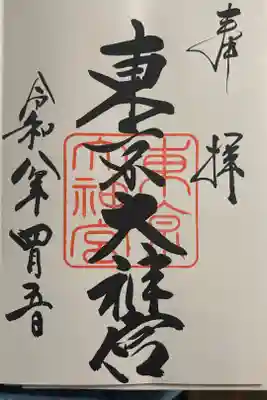 奉拝
東京大神宮
令和八年四月五日
東京大神宮